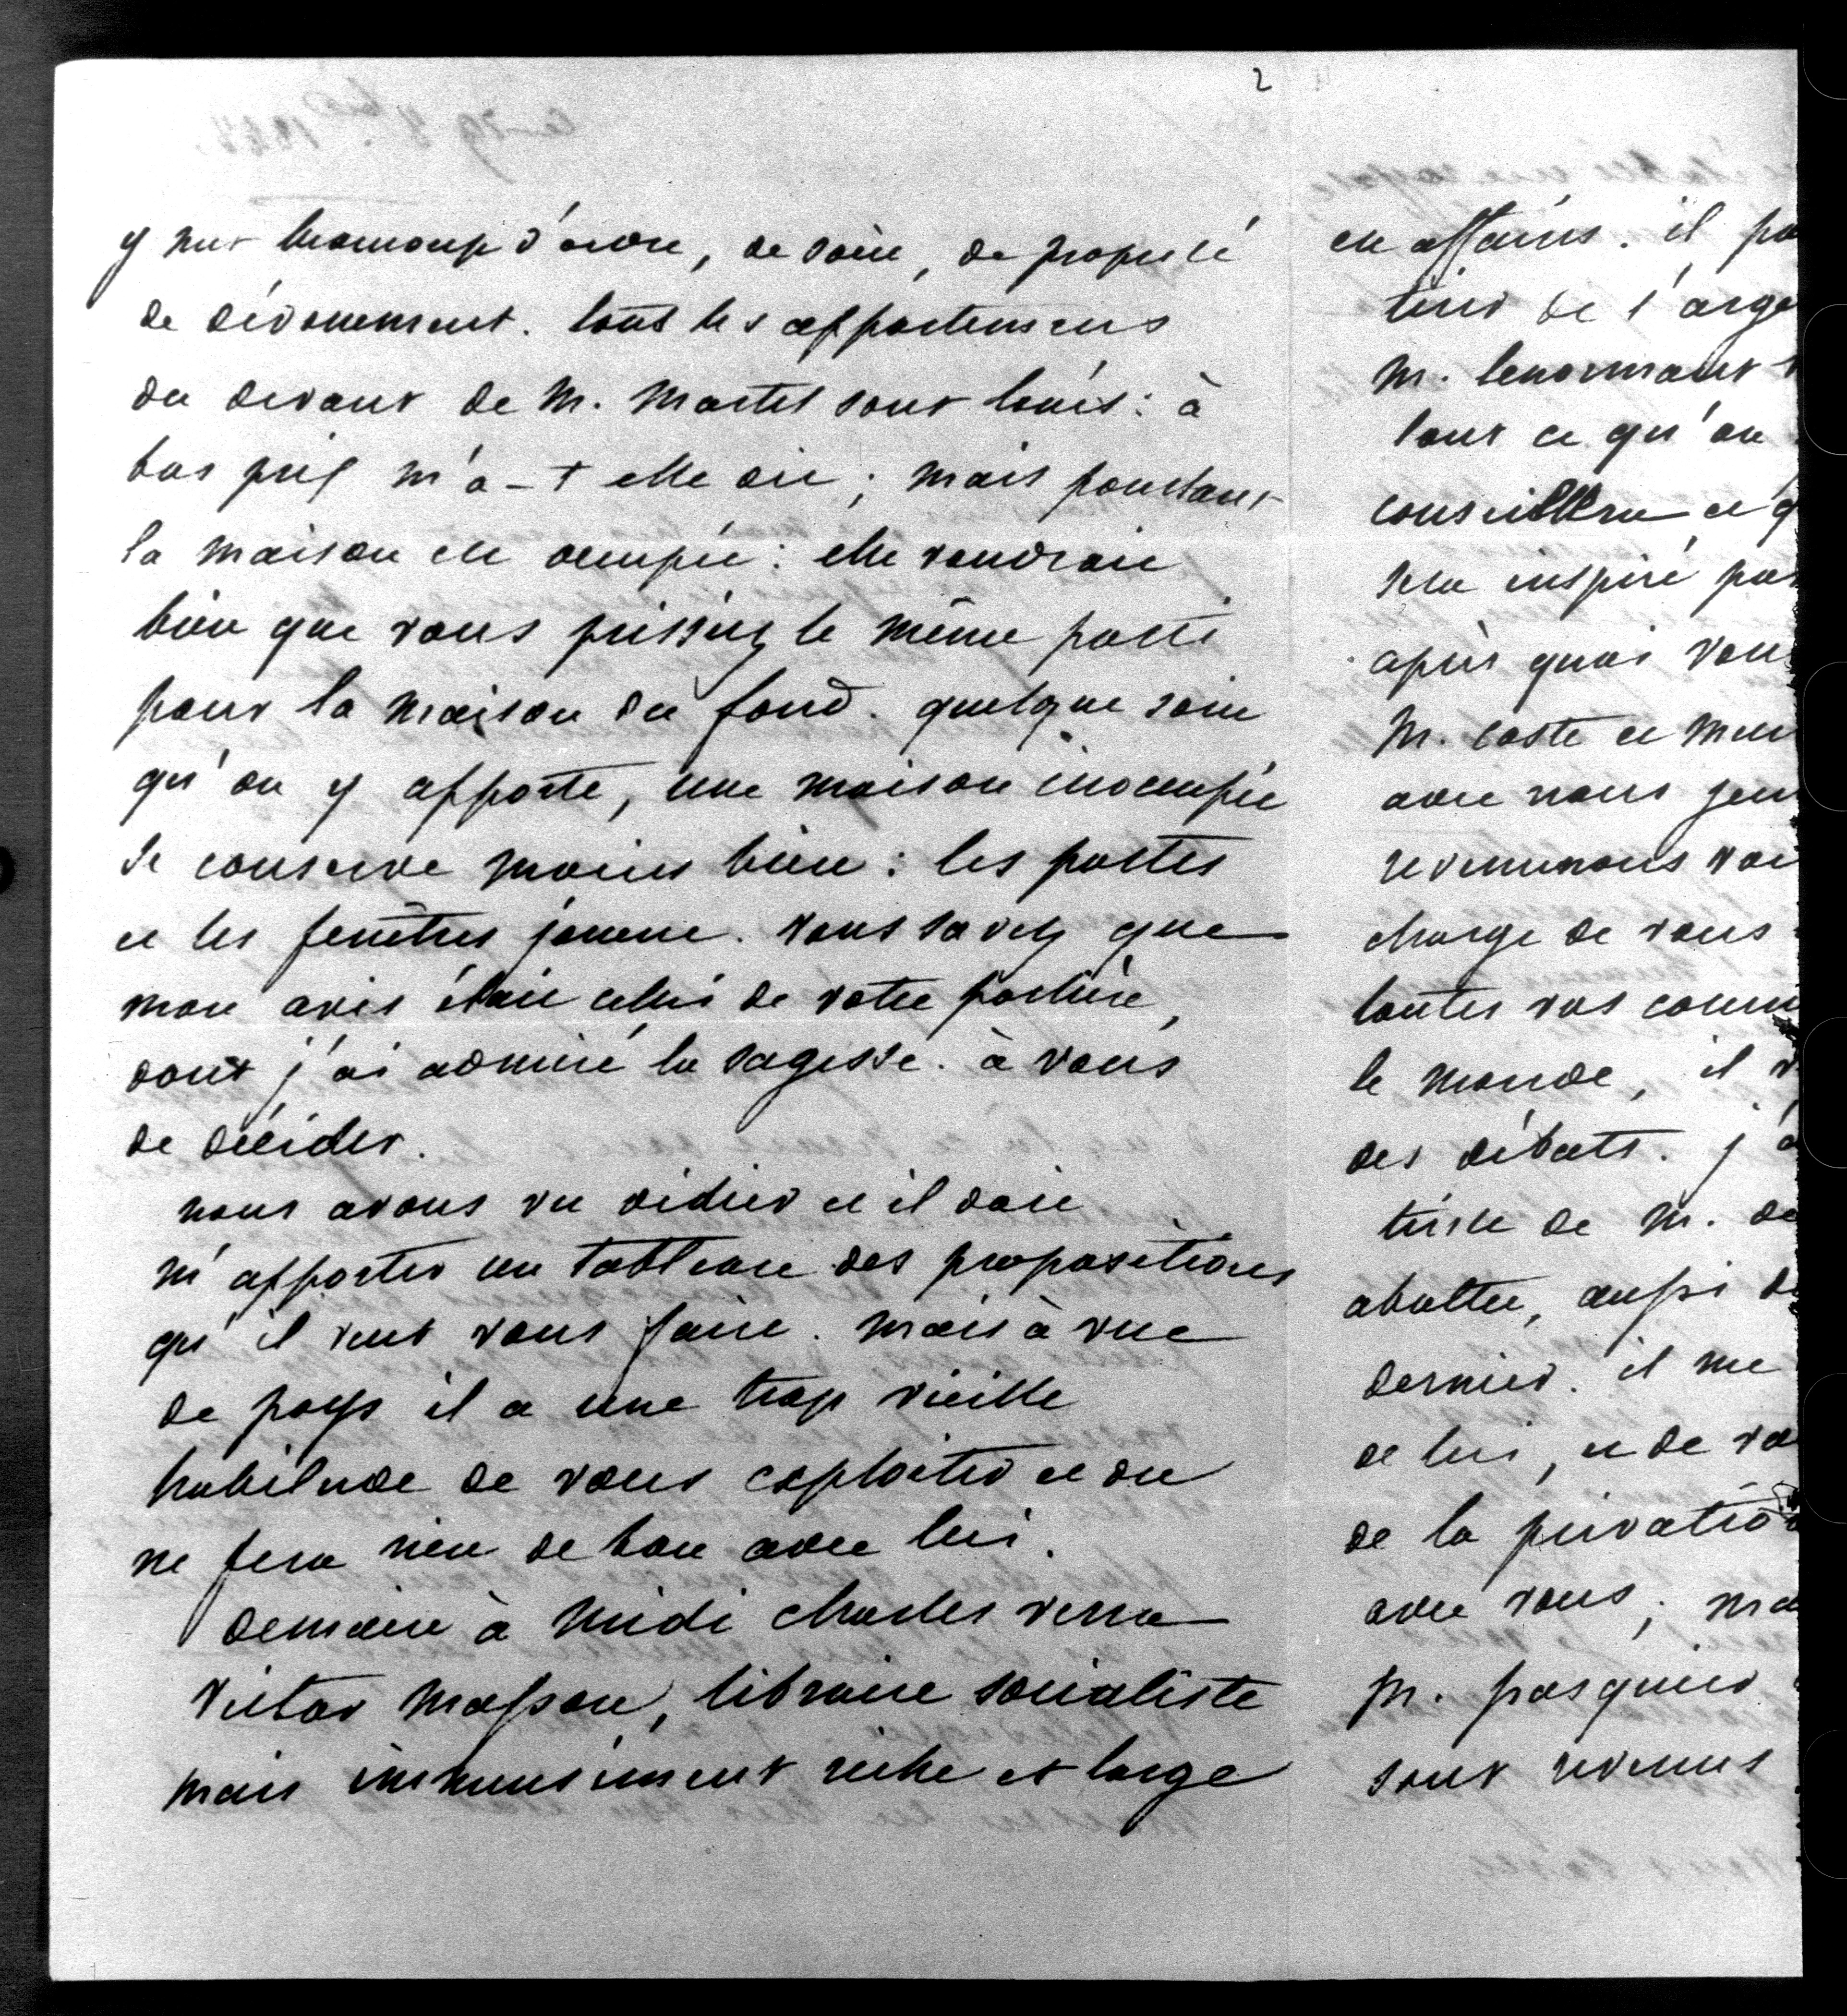 2
y met beaucoup d'ordre, de soin, de propreté
de dévouement. tout les appartemens
du devant de M. Martel sont loués: à
bas prix m'a-t elle dit; mais pourtant
la maison est occupée: elle voudrait
bien que vous prissiez le même parti
pour la maison du fond. quelque soin
qu'on y apporte, une maison inoccupée
se conserve moins bien: les portes
et les fenêtres jouent. vous savez que
mon avis était celui de votre portière,
dont j'ai admiré la sagesse. à vous
de décider.
nous avons vu didier et il doit
m'apporter un tableau des propositions
qu'il veut vous faire. mais à vue
de pays il a une trop vieille
habitude de vous exploiter et on
ne fera rien de bon avec lui.
demain à midi charles verra
victor masson, libraire socialiste
mais immensément riche et large
en affaires. il
tirer de l'arge
M. lenormant
tout ce qu'on
conseillera et q
sera inspiré pa
après quoi vou
M. coste et
avec nous
reviennons
charge de vous
toutes vos comm
le monde, il
des débats. j'a
triste de M. de
abattu, aussi
dernier. il me
de lui, et de vo
de la privatio
avec vous; ma
M. pasquier
sont revenus